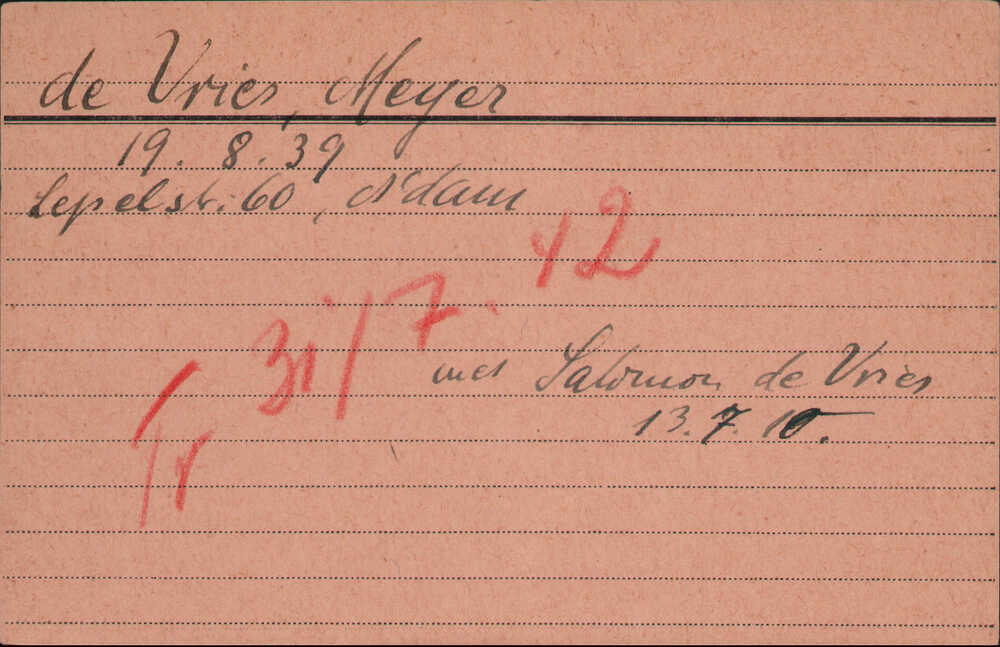 de Vries, Meyer
19. 8. 39
Lepelstr. 60, A'dam
Tr 31/7. 42
met Salomon de Vries
13. 7. 10.